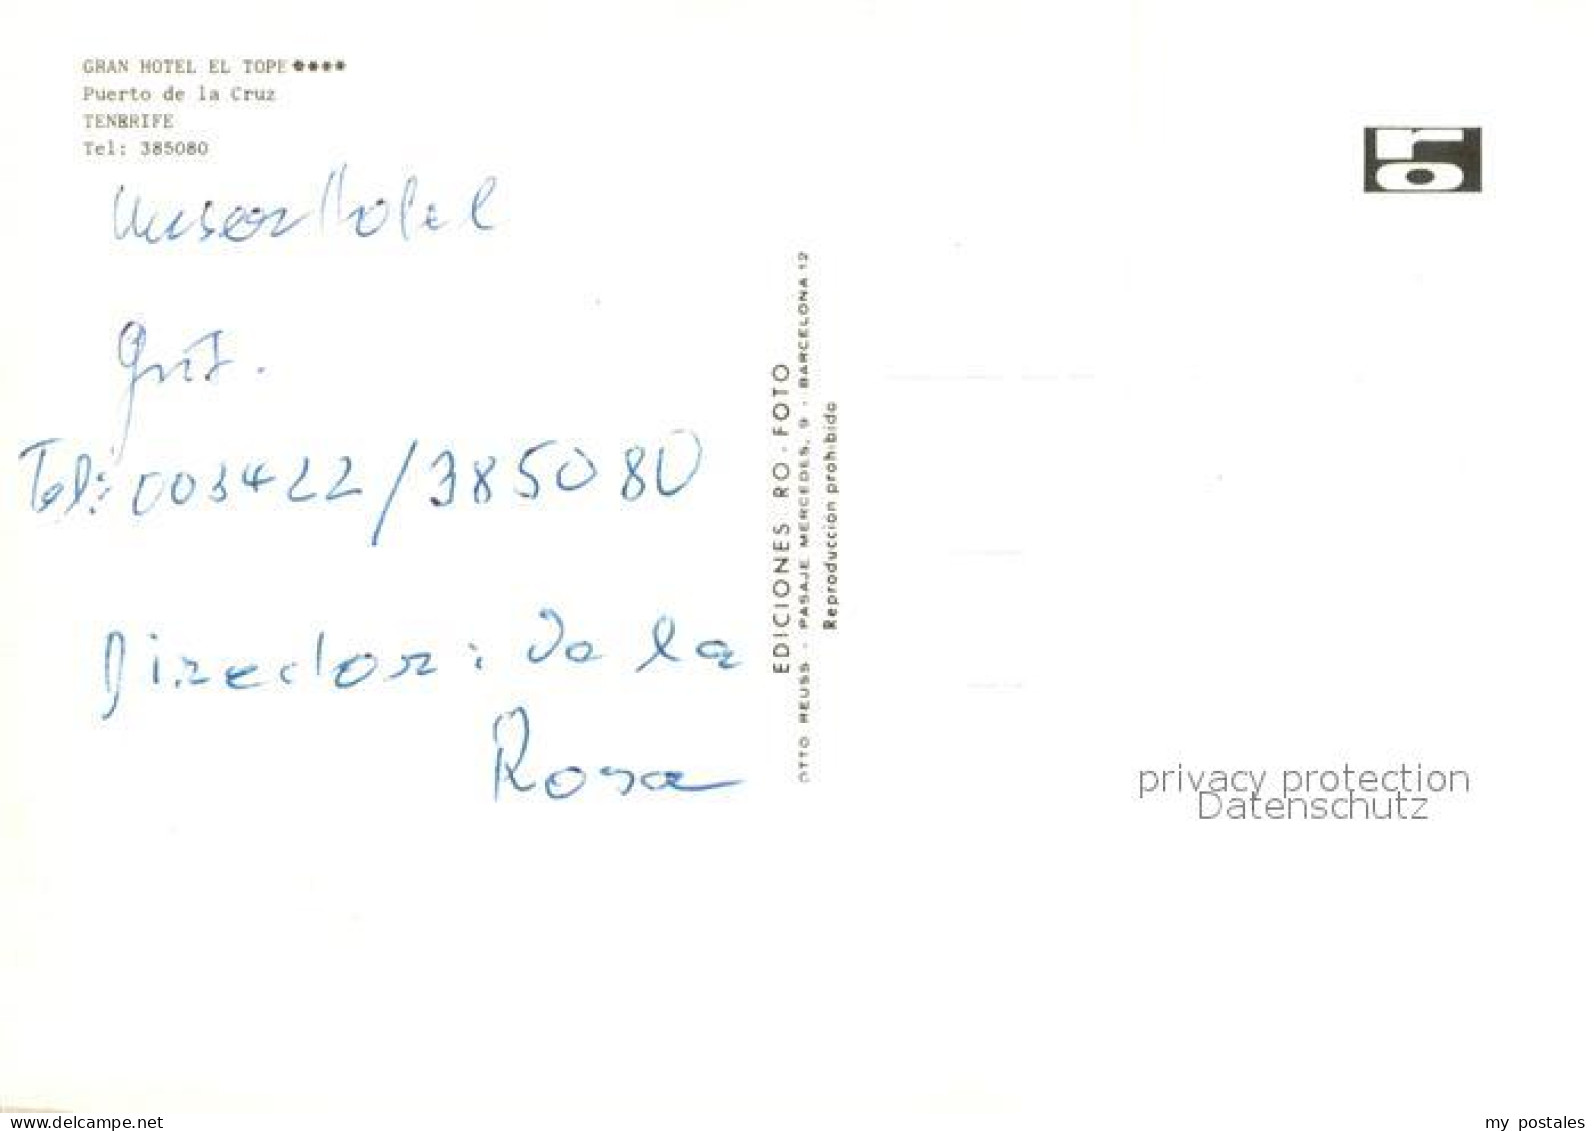 GRAN HOTEL EL TOPE ****
Puerto de la Cruz
TENERIFE
Tel: 385080
Unser Hotel
gut.
Tel: 003422/385080
Director: De la
Rosa
EDICIONES RO-FOTO
OTTO REUSS - PASAJE MERCEDES, 9 - BARCELONA 12
Reproducción prohibido
ro
privacy protection
Datenschutz
www.delcampe.net
my_postales